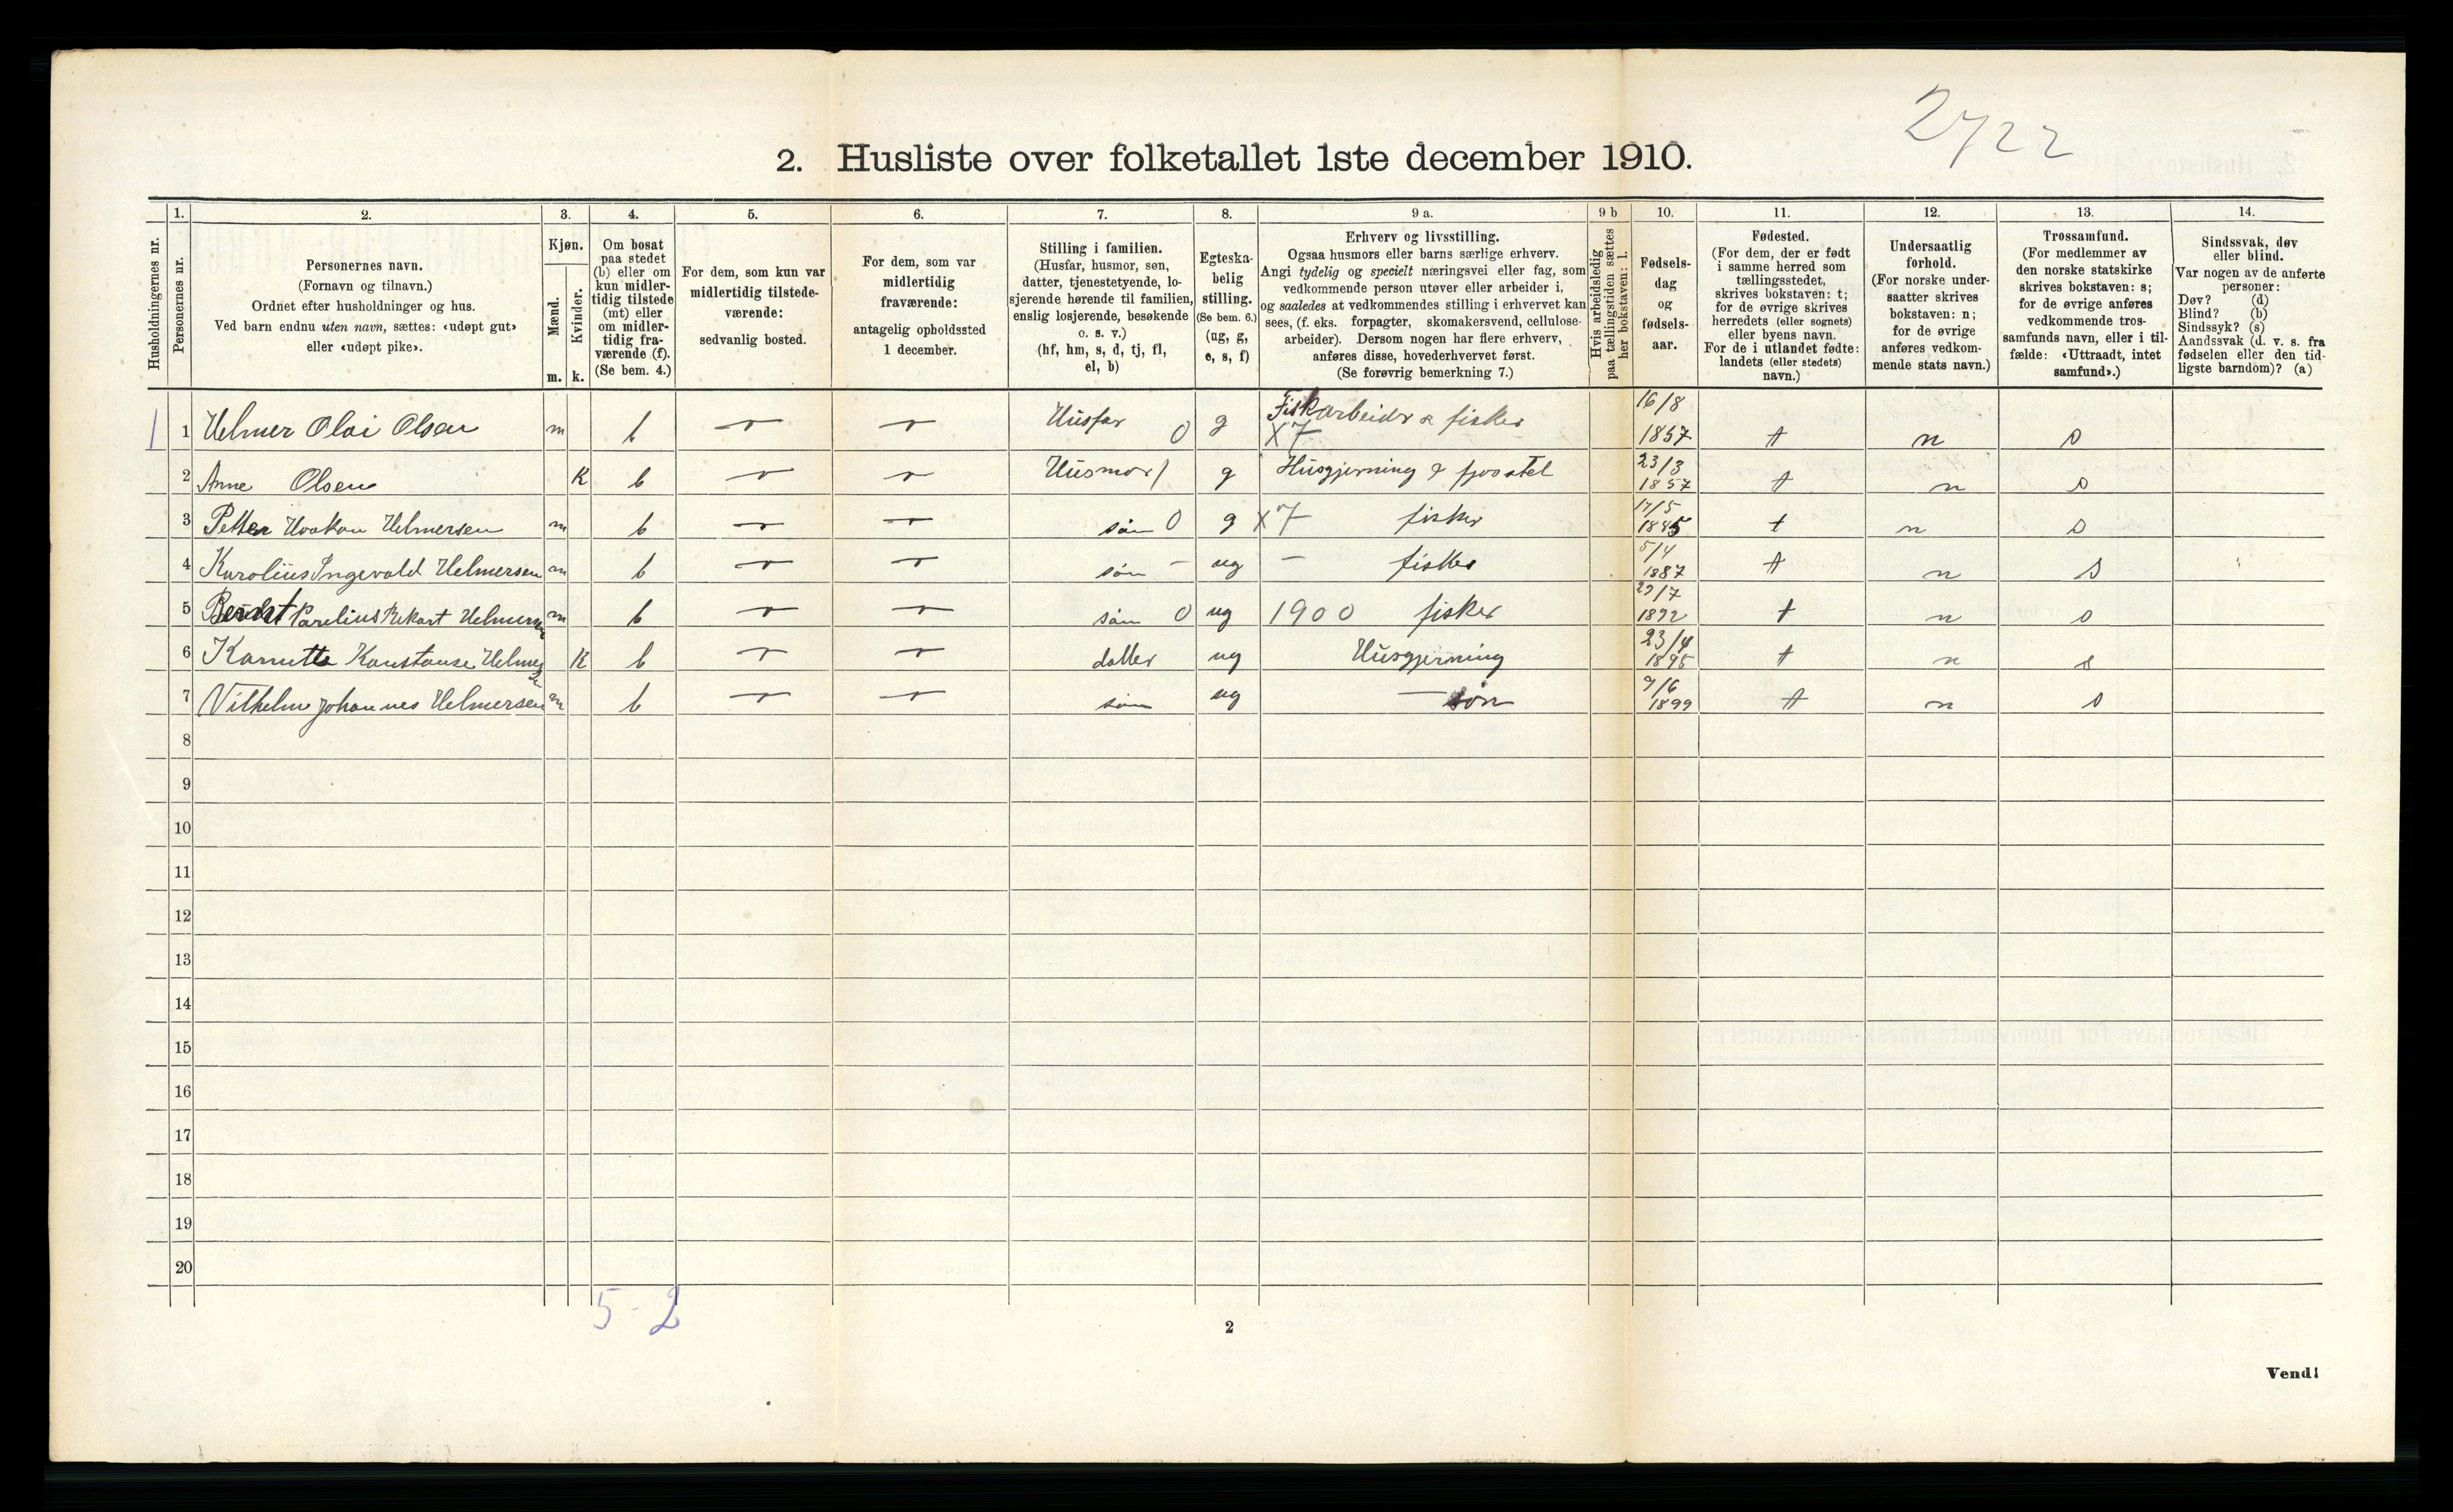 2722
2. Husliste over folketallet 1ste december 1910.
Husholdningernes nr.
1.
Personernes nr.
2.
Personernes navn.
(Fornavn og tilnavn.)
Ordnet efter husholdninger og hus.
Ved barn endnu uten navn, sættes: «udøpt gut»
eller «udøpt pike».
3.
Kjøn.
Mænd.
Kvinder.
m. k.
4.
Om bosat
paa stedet
(b) eller om
kun midler-
tidig tilstede
(mt) eller
om midler-
tidig fra-
værende (f).
(Se bem. 4.)
5.
For dem, som kun var
midlertidig tilstede-
værende:
sedvanlig bosted.
6.
For dem, som var
midlertidig
fraværende:
antagelig opholdssted
1 december.
7.
Stilling i familien.
(Husfar, husmor, søn,
datter, tjenestetyende, lo-
sjerende hørende til familien,
enslig losjerende, besøkende
o. s. v.)
(hf, hm, s, d, tj, fl,
el, b)
8.
Egteska-
belig
stilling.
(Se bem. 6.)
(ug, g,
e, s, f)
9 a.
Erhverv og livsstilling.
Ogsaa husmors eller barns særlige erhverv.
Angi tydelig og specielt næringsvei eller fag, som
vedkommende person utøver eller arbeider i,
og saaledes at vedkommendes stilling i erhvervet kan
sees, (f. eks. forpagter, skomakersvend, cellulose-
arbeider). Dersom nogen har flere erhverv,
anføres disse, hovederhvervet først.
(Se forøvrig bemerkning 7.)
9 b
Hvis arbeidsledig
paa tællingstiden sættes
her bokstaven: l.
10.
Fødsels-
dag
og
fødsels-
aar.
11.
Fødested.
(For dem, der er født
i samme herred som
tællingsstedet,
skrives bokstaven: t;
for de øvrige skrives
herredets (eller sognets)
eller byens navn.
For de i utlandet fødte:
landets (eller stedets)
navn.)
12.
Undersaatlig
forhold.
(For norske under-
saatter skrives
bokstaven: n;
for de øvrige
anføres vedkom-
mende stats navn.)
13.
Trossamfund.
(For medlemmer av
den norske statskirke
skrives bokstaven: s;
for de øvrige anføres
vedkommende tros-
samfunds navn, eller i til-
fælde: «Uttraadt, intet
samfund».)
14.
Sindssvak, døv
eller blind.
Var nogen av de anførte
personer:
Døv? (d)
Blind? (b)
Sindssyk? (s)
Aandssvak (d. v. s. fra
fødselen eller den tid-
ligste barndom)? (a)
1 1 Helmer Olai Olsen m b Husfar 0 g Fiskarbeider & fisker X7 16/8 1857 t n s
2 Anne Olsen K b Husmor g Husgjerning & 23/3 1857 t n s
3 Petter Haakon Helmersen m b søn 0 g X7 fisker 17/5 1885 t n s
4 Karolius Ingevald Helmersen m b søn - ug - fisker 5/4 1887 t n s
5 Berndt Parelius Rikart Helmersen m b søn 0 ug 1900 fisker 29/7 1892 t n s
6 Konstanse Helmersen K b datter ug Husgjerning 23/4 1895 t n s
7 Vilhelm Johannes Helmersen m b søn ug — søn 9/6 1899 t n s
8
9
10
11
12
13
14
15
16
17
18
19
20
5 - 2
2
Vend!